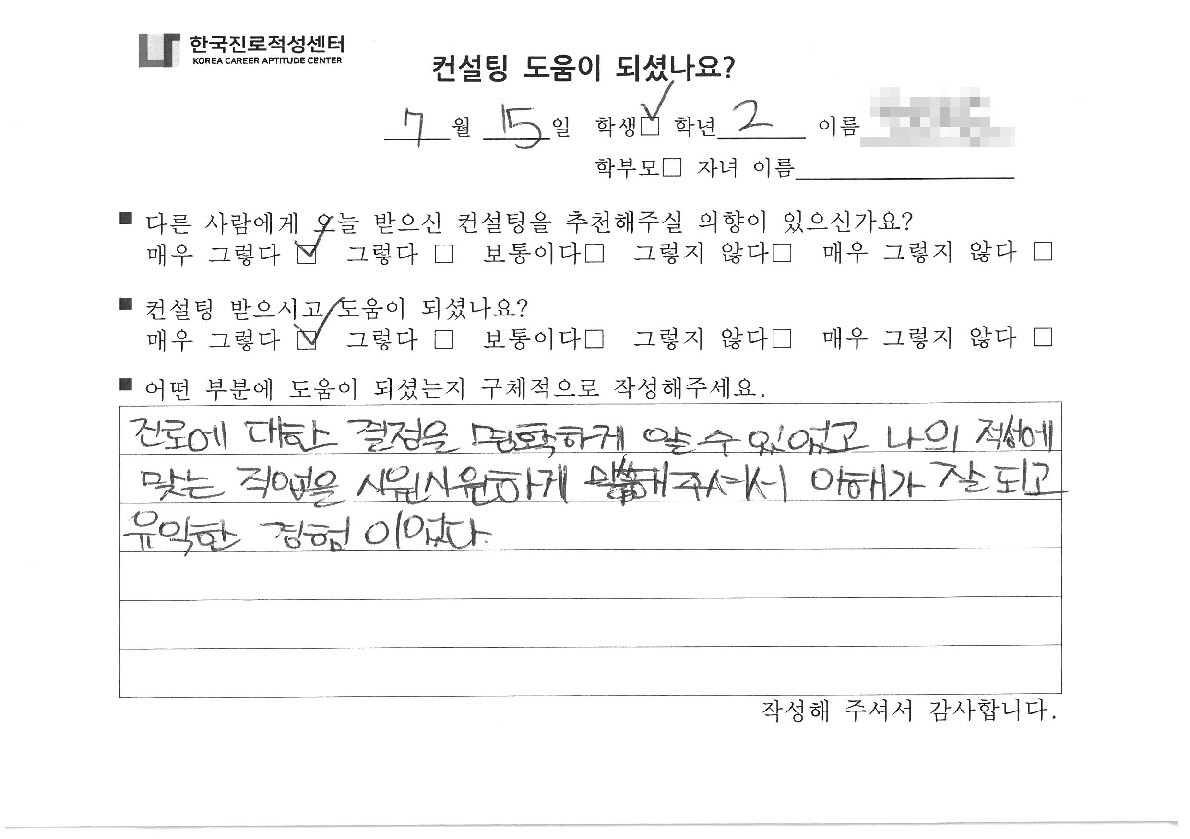 한국진로적성센터
KOREA CAREER APTITUDE CENTER
컨설팅 도움이 되셨나요?
7월 15일 학생☑ 학년 2 이름
학부모□ 자녀 이름
■ 다른 사람에게 오늘 받으신 컨설팅을 추천해주실 의향이 있으신가요?
매우 그렇다 ☑ 그렇다 □ 보통이다□ 그렇지 않다□ 매우 그렇지 않다 □
■ 컨설팅 받으시고 도움이 되셨나요?
매우 그렇다 ☑ 그렇다 □ 보통이다□ 그렇지 않다□ 매우 그렇지 않다 □
■ 어떤 부분에 도움이 되셨는지 구체적으로 작성해주세요.
진로에 대한 결정을 명확하게 알 수 있었고 나의 적성에
맞는 직업을 시원시원하게 말해주셔서 이해가 잘 되고
유익한 경험이었다.
작성해 주셔서 감사합니다.